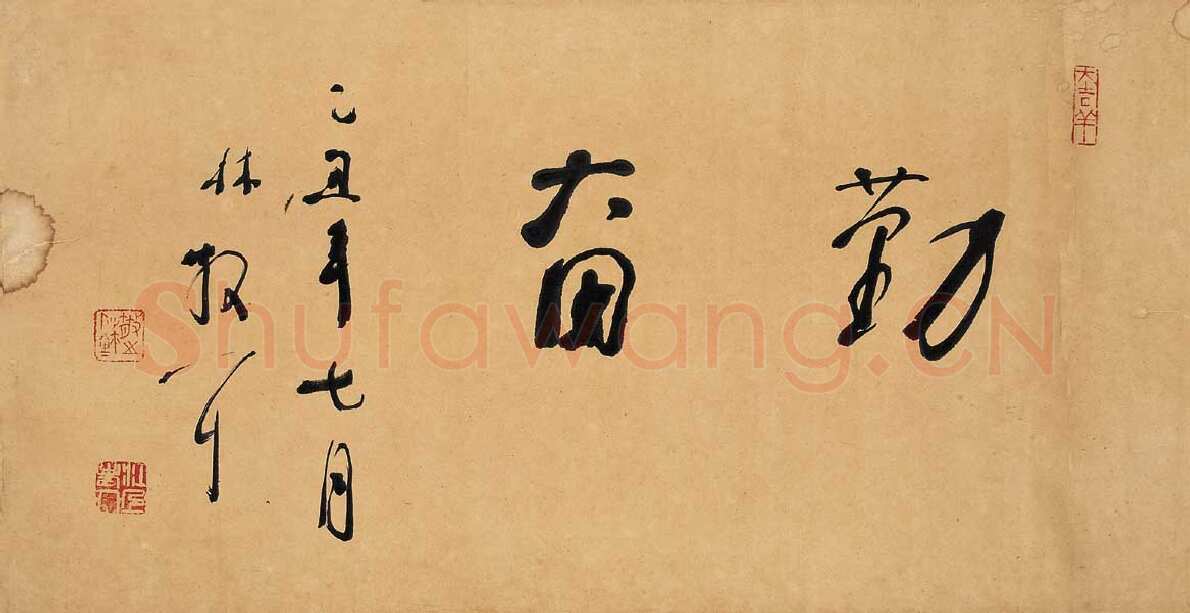 勤奋
乙丑年七月
林散之
大吉羊
Shufawang.CN